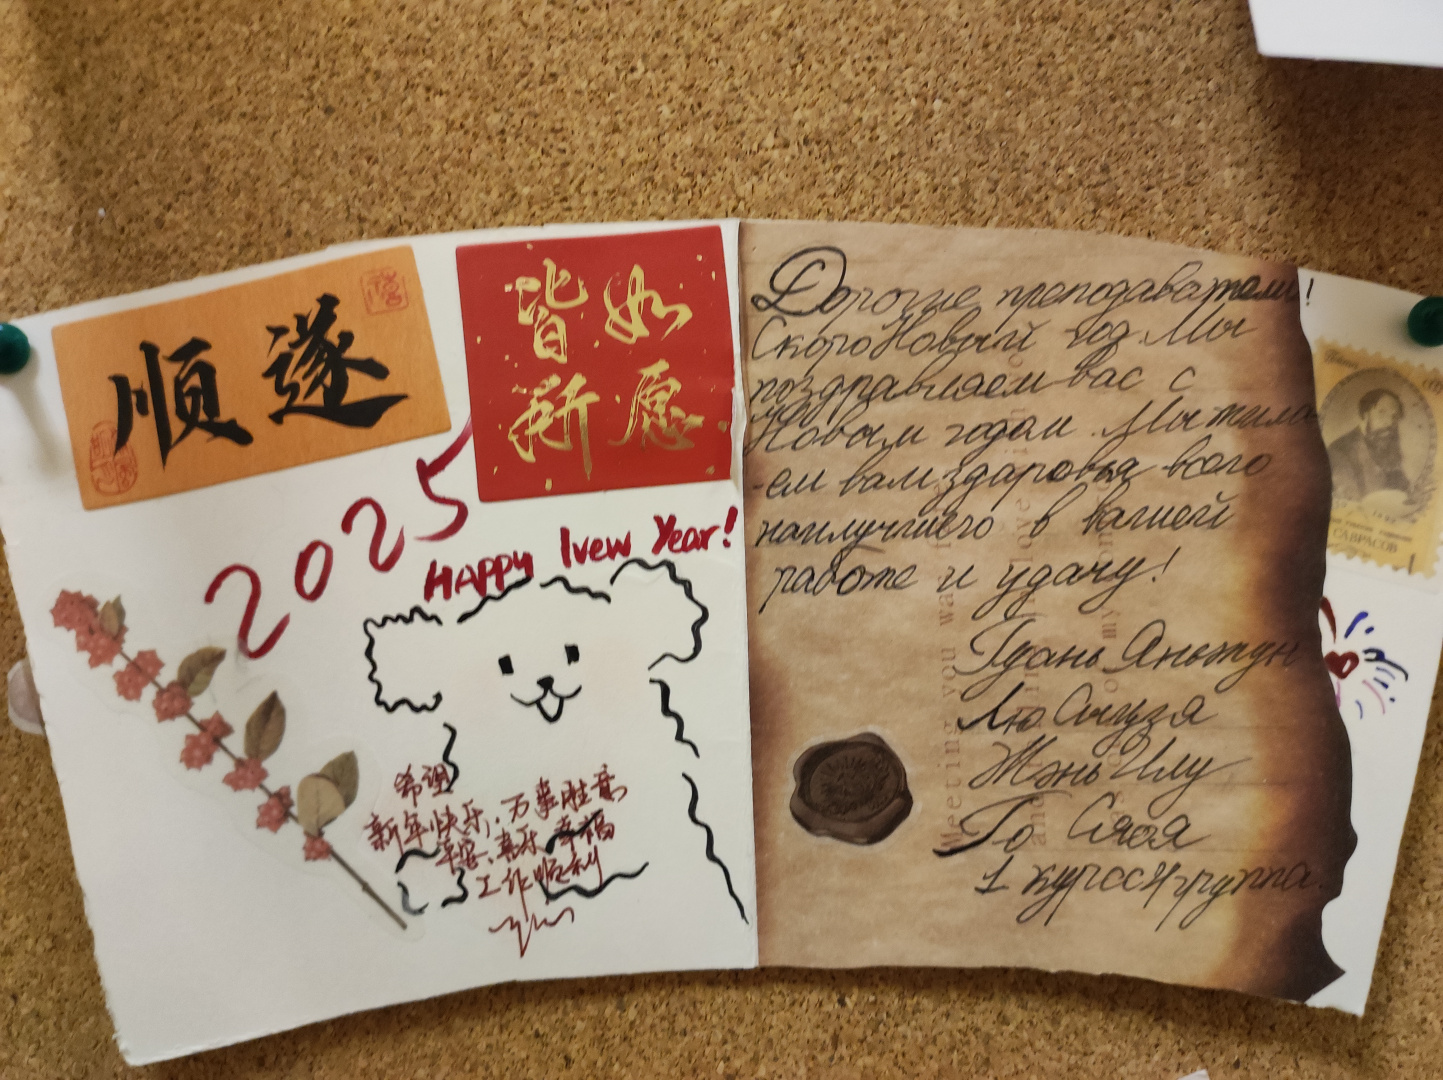 順遂
皆如
所愿
2025
HAPPY New Year!
希望
新年快乐, 万事胜意
平安、喜乐、幸福
工作顺利
Дорогие преподаватели!
Скоро Новый год. Мы
поздравляем вас с
Новым годом. Мы жела
-ем вам здоровья всего
наилучшего в вашей
работе и удачу!
Гуань Яньжун
Лю Сыцзя
Жэнь Илу
Го Сяоя
1 курс 4 группа.
САВРАСОВ